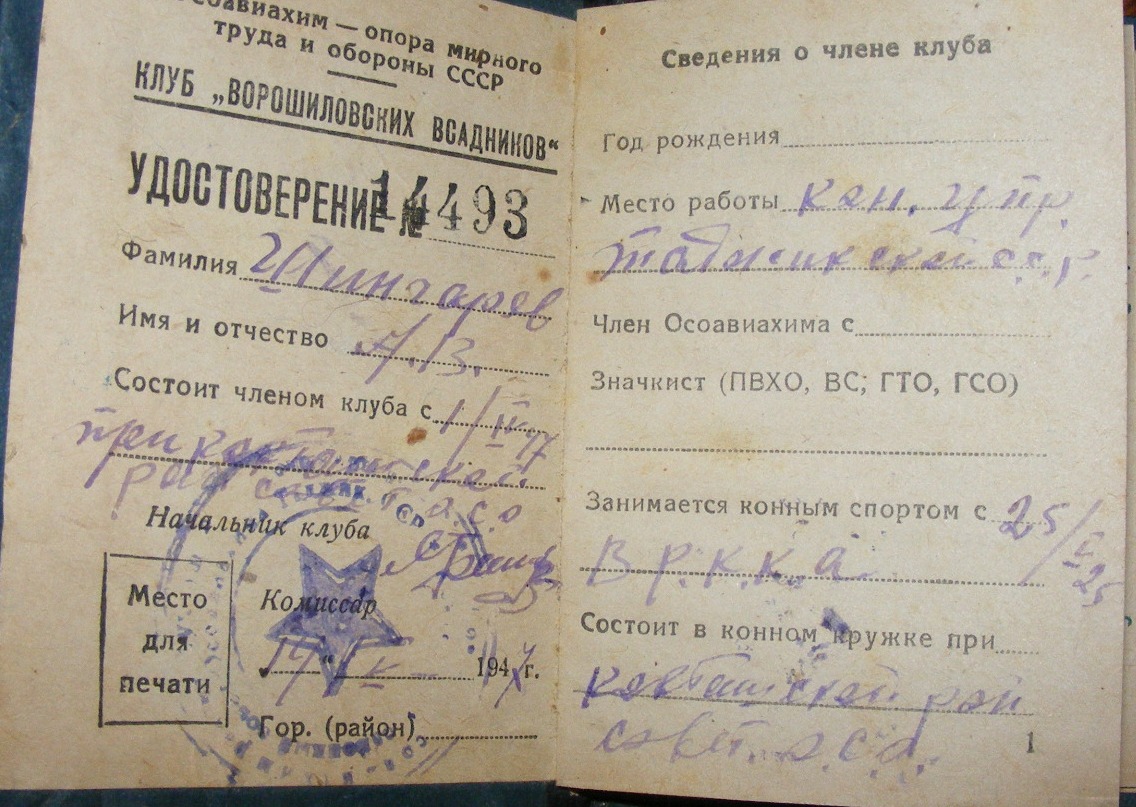 Осоавиахим — опора мирного
труда и обороны СССР
КЛУБ „ВОРОШИЛОВСКИХ ВСАДНИКОВ“
УДОСТОВЕРЕНИЕ № 14493
Фамилия Шингарев
Имя и отчество А.В.
Состоит членом клуба с 1/IV 47
при
рай
Начальник клуба
Комиссар
Место
для
печати
194 г.
Гор. (район)
Сведения о члене клуба
Год рождения
Место работы кон. упр.
таджикской сс.р.
Член Осоавиахима с
Значкист (ПВХО, ВС; ГТО, ГСО)
Занимается конным спортом с 25/V 25
В Р.К.К.А.
Состоит в конном кружке при
рай
совет. о.с.о.
1